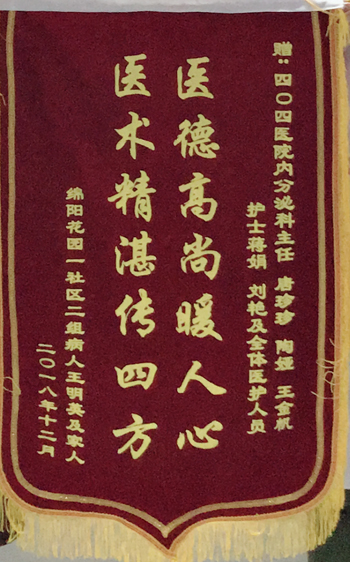 赠：四〇四医院内分泌科主任 唐珍珍 陶娅 王金帆
护士蒋娟 刘艳及全体医护人员
医德高尚暖人心
医术精湛传四方
绵阳花园一社区二组病人王明英及家人
二〇一八年十二月